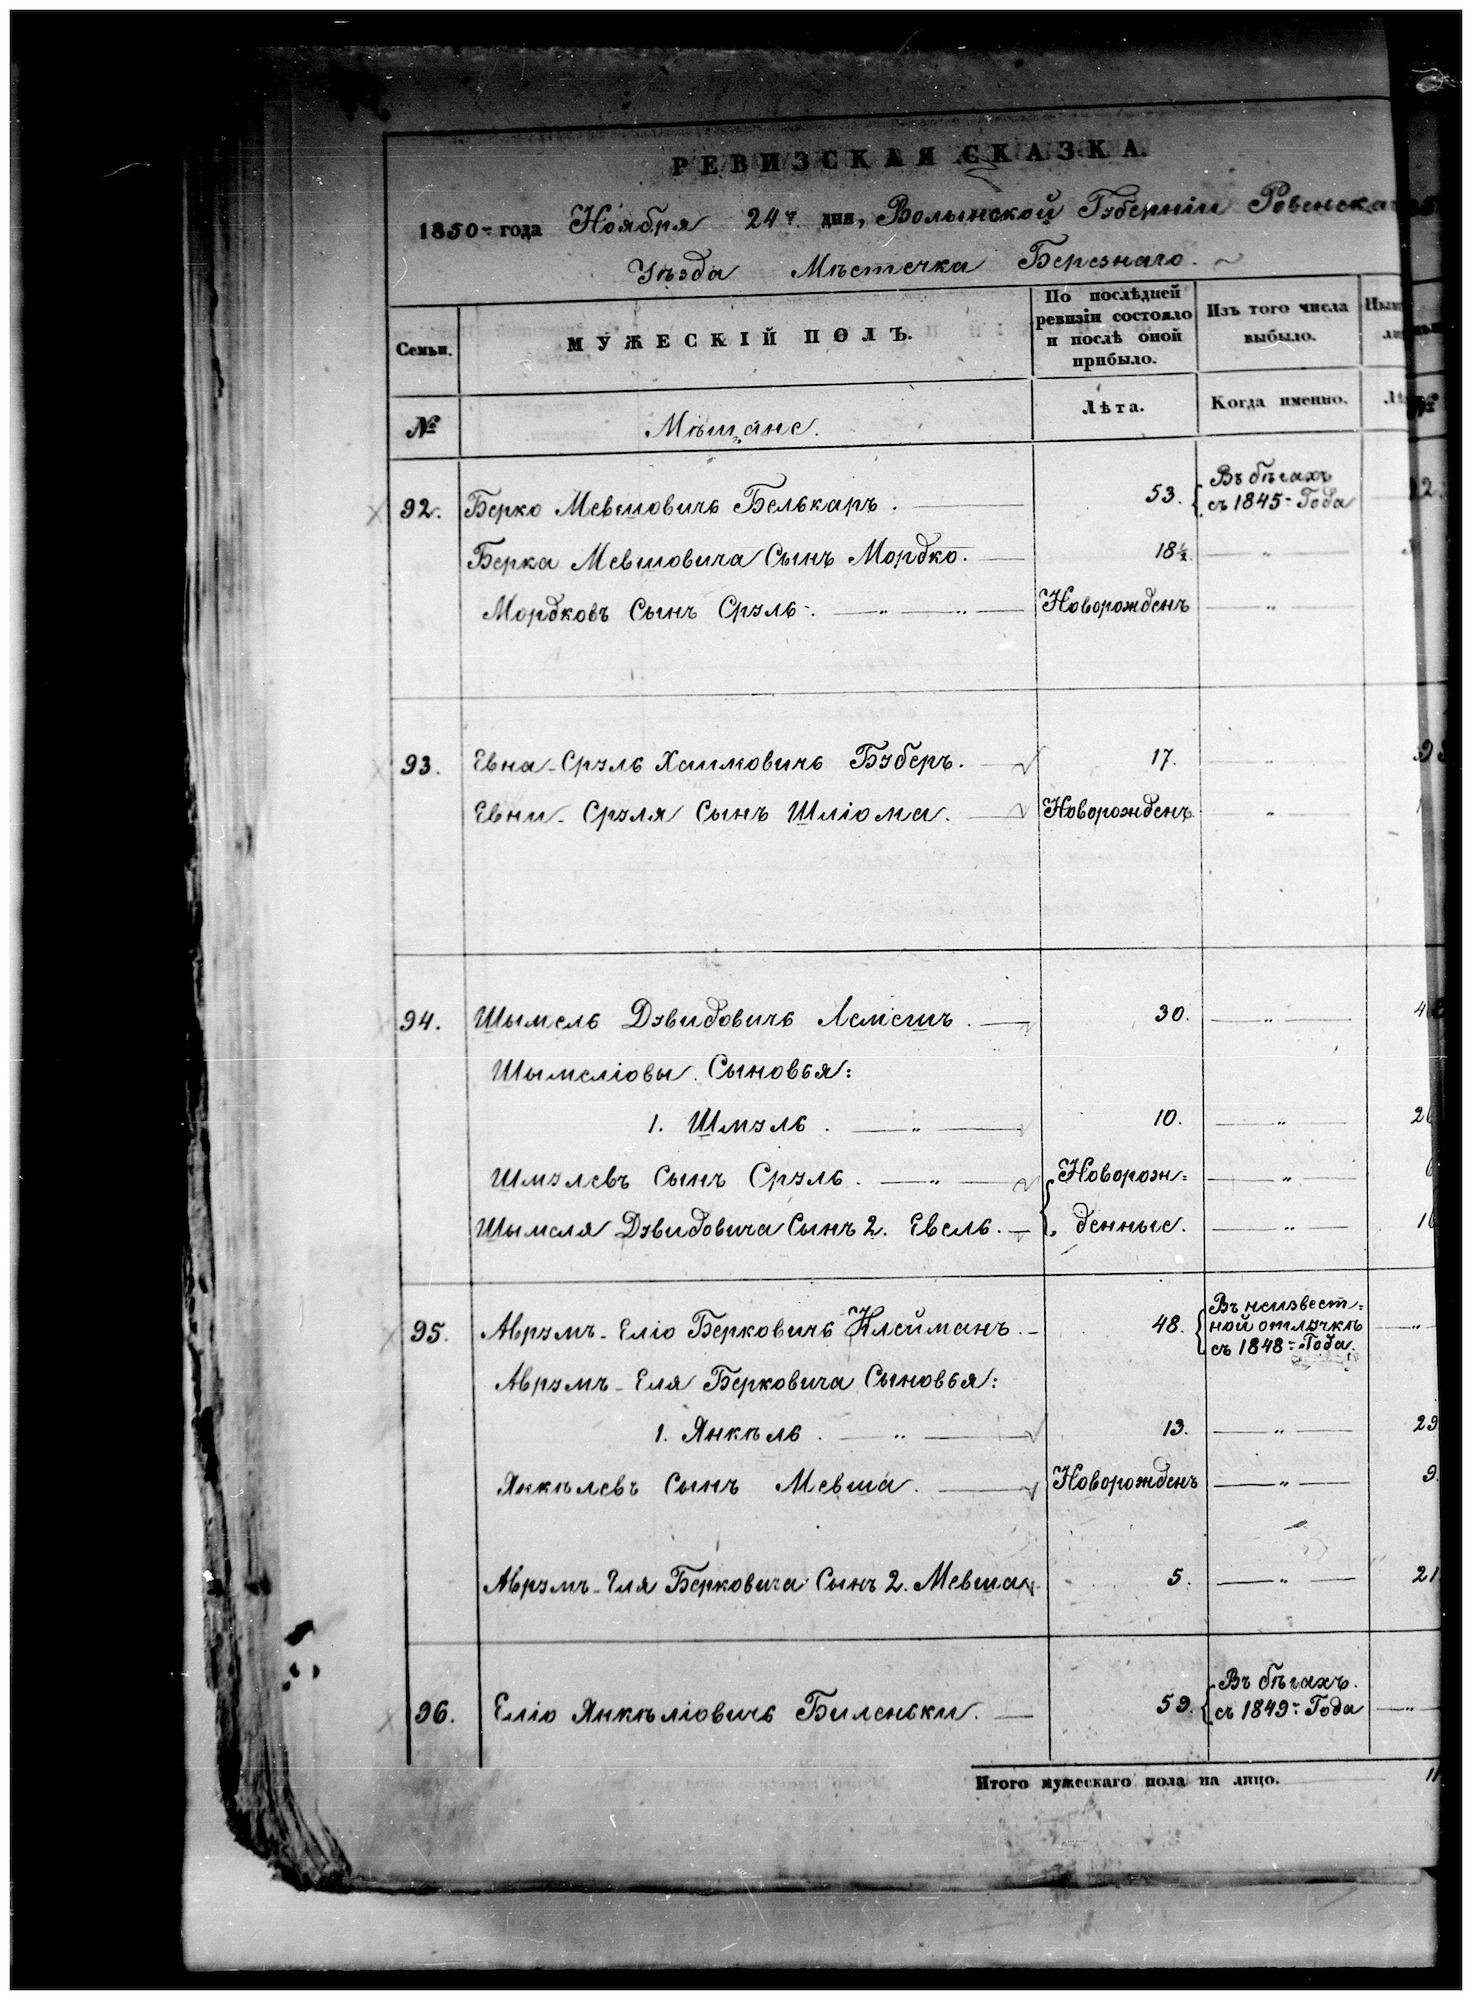 РЕВИЗСКАЯ СКАЗКА.
1850 года Ноября 24 дня, Волынской Губерніи Ровенска
Уѣзда Мѣстечка Березнаго.
Семьи.
МУЖЕСКІЙ ПОЛЪ.
По послѣдней ревизіи состояло и послѣ оной прибыло.
Изъ того числа выбыло.
№
Мѣщане.
Лѣта.
Когда именно.
92. Берко Мевшовичь Белькаръ. 53. Въ бѣгахъ съ 1845 Года
Берка Мевшовича Сынъ Мордко. 18½ "
Мордковъ Сынъ Срэль. " " Новорожденъ "
93. Евна-Срэль Хаимовичь Буберъ. 17. "
Евни-Срэля Сынъ Шліома. Новорожденъ "
94. Шымель Дэвидовичь Лемешъ. 30. "
Шымеліовы Сыновья:
1. Шмэль. " 10. " 26
Шмэлевъ Сынъ Срэль. " Новорож= "
Шымеля Дэвидовича Сынъ 2. Евель. денные. "
95. Аврэмъ-Еліо Берковичь Клейманъ. 48. Въ неизвест= ной отлучкѣ съ 1848 Года. "
Аврэмъ-Еля Берковича Сыновья:
1. Янкѣль. " 13. " 29
Янкѣлевъ Сынъ Мевша. Новорожденъ " 9.
Аврэмъ-Еля Берковича Сынъ 2. Мевша 5. " 21
96. Еліо Янкѣліовичь Биленьки. 59. Въ бѣгахъ. съ 1849 Года "
Итого мужескаго пола на лицо. 11